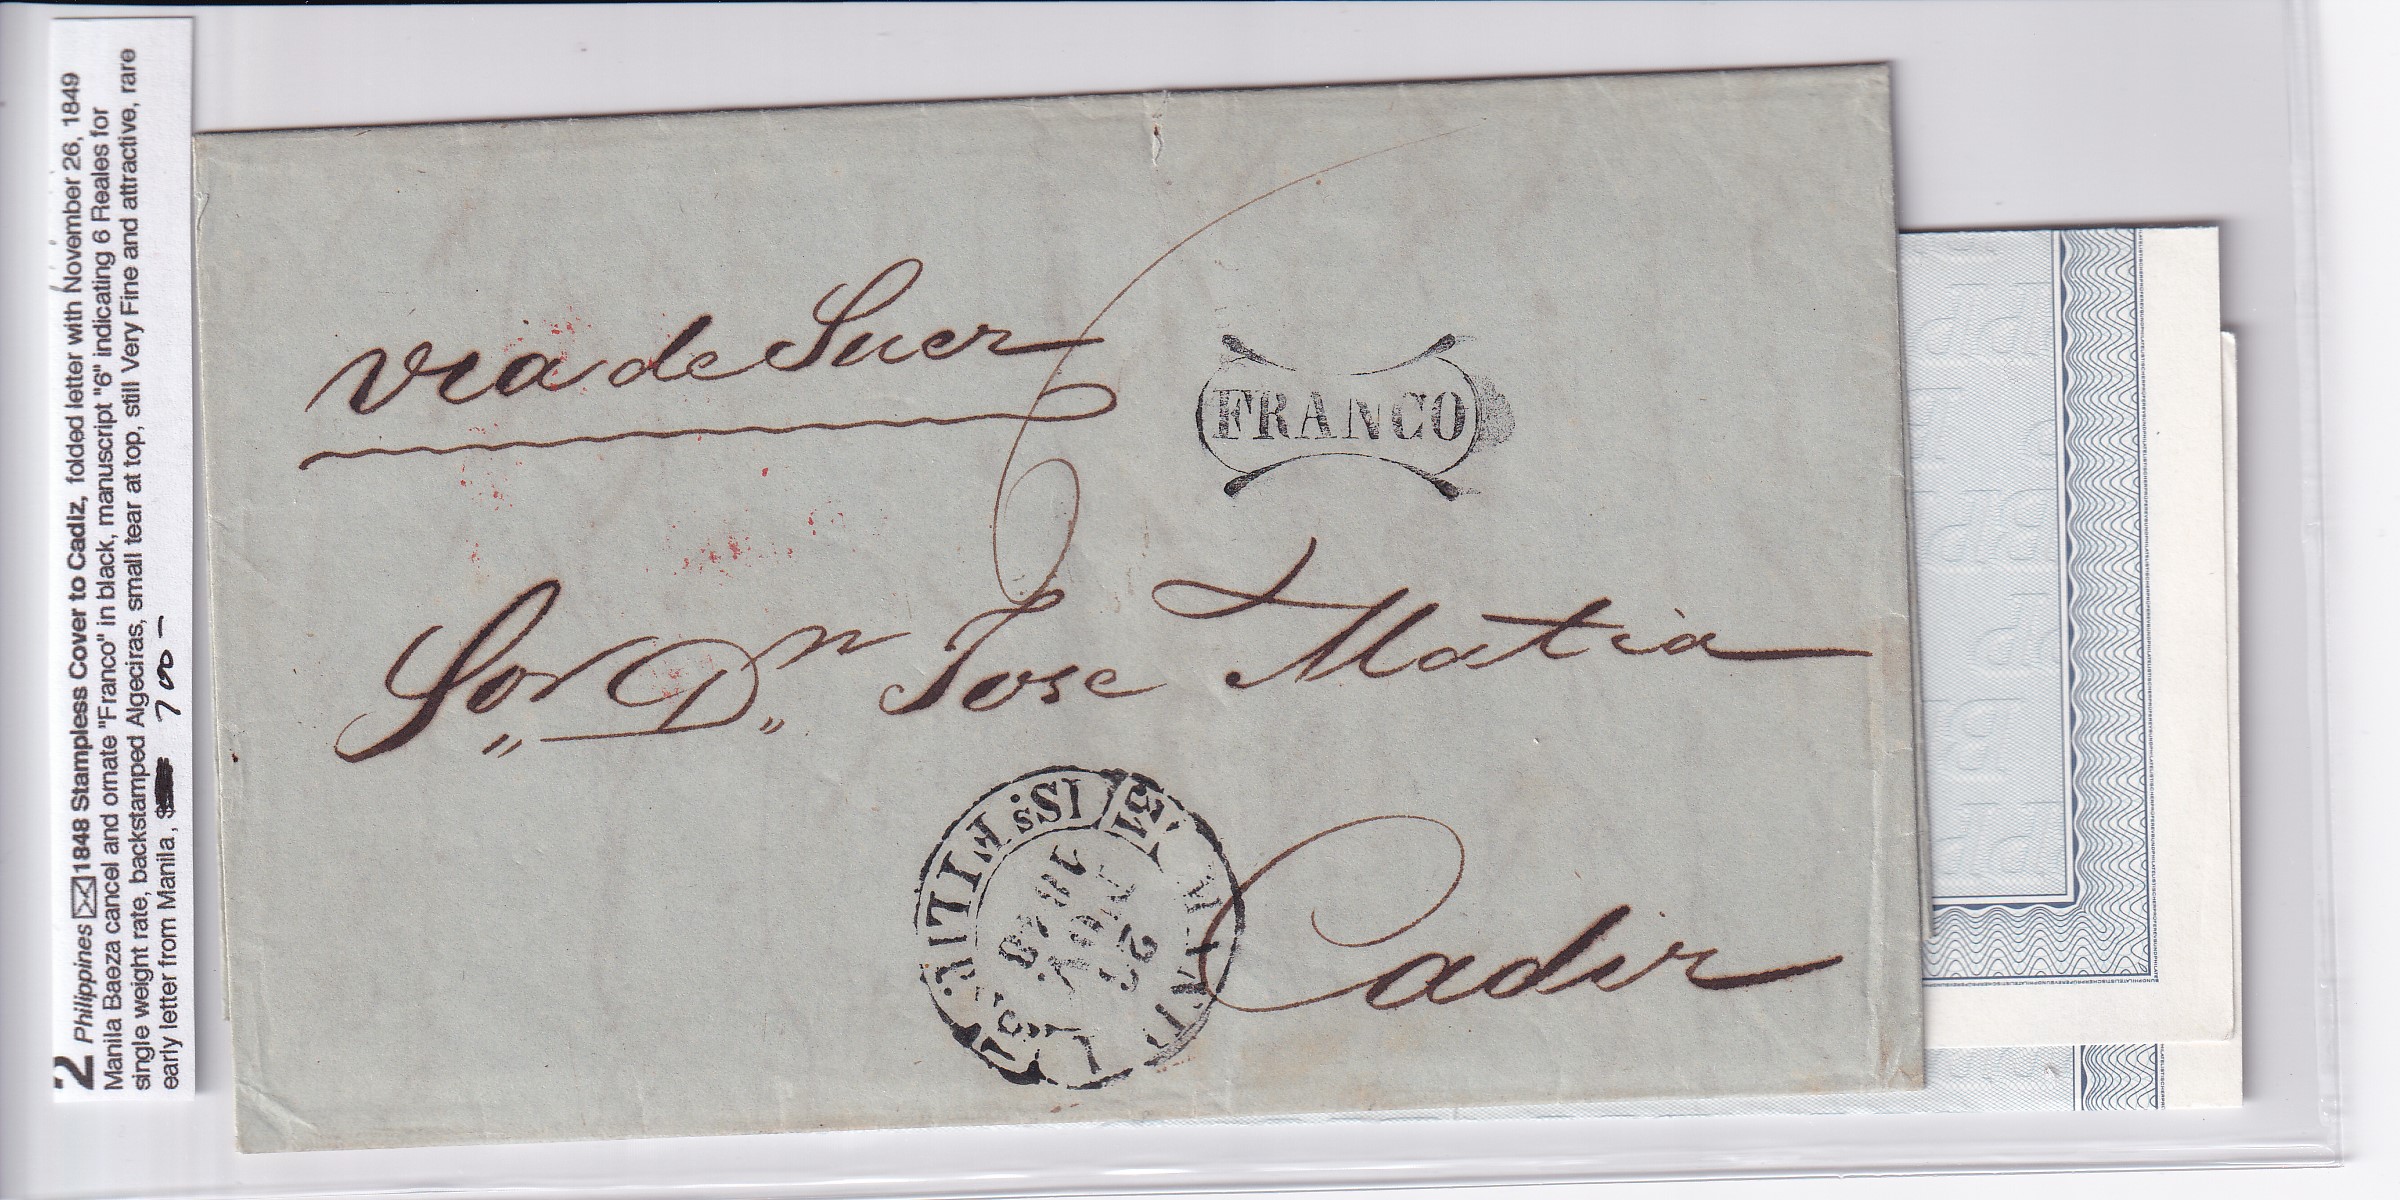 2 Philippines 1848 Stampless Cover to Cadiz, folded letter with November 26, 1849
Manila Baeza cancel and ornate "Franco" in black, manuscript "6" indicating 6 Reales for
single weight rate, backstamped Algeciras, small tear at top, still Very Fine and attractive, rare
early letter from Manila, $ 700-
via de Suez
FRANCO
6
Sor Dn Jose Matia
Cadiz
MANILA
ISS. FILIPS.
NOV.